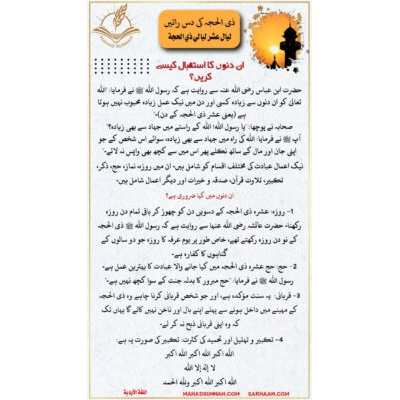 ذی الحجہ کی دس راتیں
ليال عشر ليالي ذي الحجة
ان دنوں کا استقبال کیسے
کریں؟
حضرت ابن عباس رضی اللہ عنہ سے روایت ہے کہ رسول اللہ ﷺ نے فرمایا: "اللہ
تعالیٰ کو ان دنوں سے زیادہ کسی اور دن میں نیک عمل زیادہ محبوب نہیں ہوتا
ہے (یعنی عشرہ ذی الحجہ کے دن)۔"
صحابہ نے پوچھا: "یا رسول اللہ! اللہ کے راستے میں جہاد سے بھی زیادہ؟"
آپ ﷺ نے فرمایا: "اللہ کی راہ میں جہاد سے بھی زیادہ، سوائے اس شخص کے جو
اپنی جان اور مال کے ساتھ نکلے پھر اس میں سے کچھ بھی واپس نہ لائے۔"
نیک اعمال عبادت کی مختلف اقسام کو شامل ہیں۔ ان میں روزہ، نماز، حج، ذکر،
تکبیر، تلاوت قرآن، صدقہ و خیرات اور دیگر اعمال شامل ہیں۔
ان دنوں میں کیا ضروری ہے؟
1- روزہ: عشرہ ذی الحجہ کے دسویں دن کو چھوڑ کر باقی تمام دن روزہ
رکھنا۔ حضرت عائشہ رضی اللہ عنہا سے روایت ہے کہ رسول اللہ ﷺ ذی الحجہ
کے نو دن روزہ رکھتے تھے، خاص طور پر یوم عرفہ کا روزہ، جو دو سالوں کے
گناہوں کا کفارہ ہے۔
2- حج: حج عشرہ ذی الحجہ میں کیا جانے والا عبادت کا بہترین عمل ہے۔
رسول اللہ ﷺ نے فرمایا: "حج مبرور کا بدلہ جنت کے سوا کچھ نہیں ہے۔"
3- قربانی: یہ سنت مؤکدہ ہے، اور جو شخص قربانی کرنا چاہے وہ ذی الحجہ
کے مہینے میں داخل ہونے سے پہلے اپنے بال اور ناخن نہیں کاٹے گا یہاں تک
کہ وہ اپنی قربانی ذبح نہ کر لے۔
4- تکبیر و تہلیل اور تحمید کی کثرت: تکبیر کی صورت یہ ہے:
الله اكبر الله اكبر الله اكبر
لا إله إلا الله
الله اكبر الله اكبر ولله الحمد
اللغة الأردية
MAHADSUNNAH.COM
SARHAAN.COM